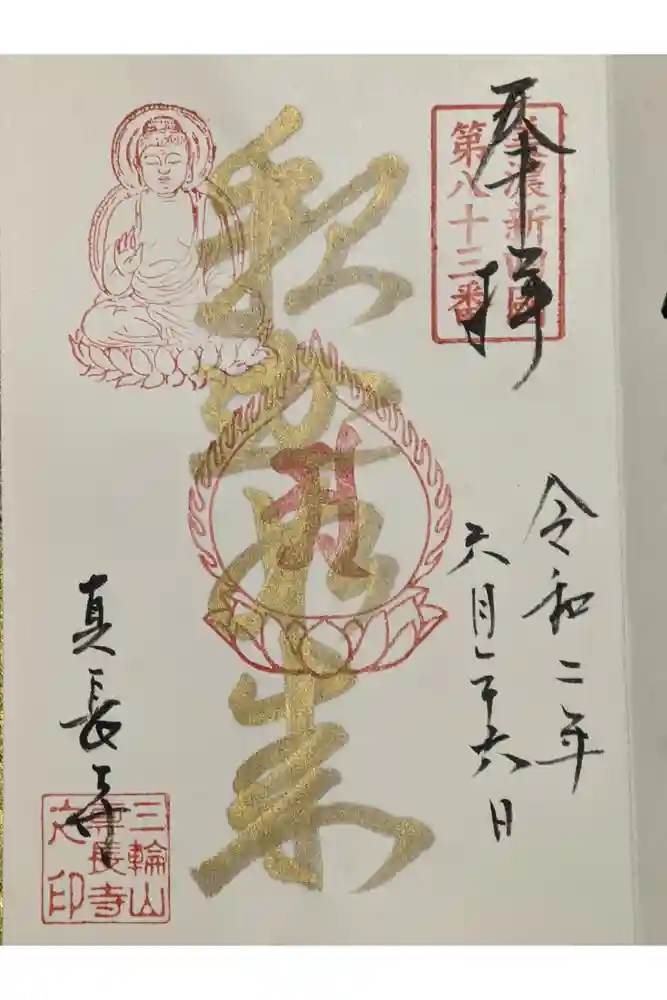 奉拝
美濃新四國
第八十三番
令和二年
六月二十六日
釈迦如来
真長寺
三輪山
真長寺
之印